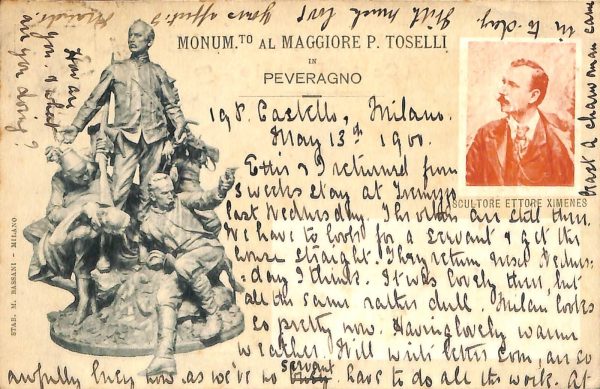 MONUM.TO AL MAGGIORE P. TOSELLI
IN
PEVERAGNO
SCULTORE ETTORE XIMENES
STAB. M. BASSANI - MILANO
198. Castello, Milano.
May 13th 1900.
& I returned from
3 weeks stay at
last Wednesday. The others are still there.
We have to look for a servant & get the
house straight. They return next Wednes-
-day I think. It was lovely there, but
all the same rather dull. Milan looks
so pretty now. Having lovely warm
weather. Will write letter soon, am so
awfully busy now as we've no servant have to do all the work. At
least a charwoman came
in to-day
With much love
yours
How are
you & what
are you doing?